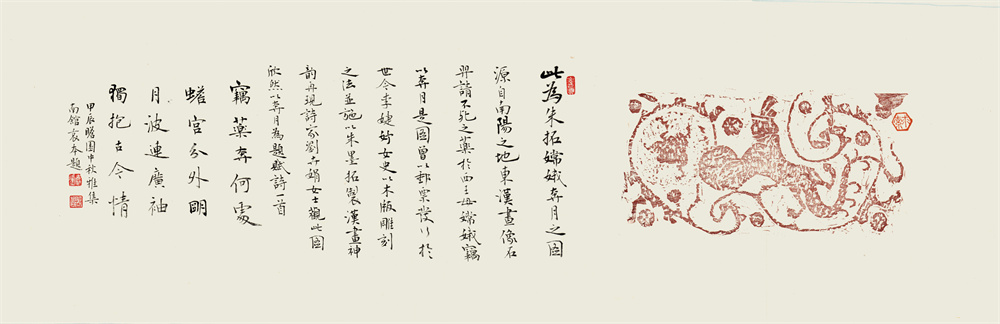 此為朱拓嫦娥奔月之圖
源自南陽之地東漢畫像石
羿請不死之藥於西王母嫦娥竊
以奔月是圖曾以郵票發行於
世今李婕妤女史以木版雕刻
之法並施以朱墨拓製漢畫神
韵再現詩家劉卉娟女士觀此圖
欣然以奔月為題賦詩一首
竊藥奔何處
蟾宮分外明
月波連廣袖
獨抱古今情
甲辰瞻園中秋雅集
南館袁春題